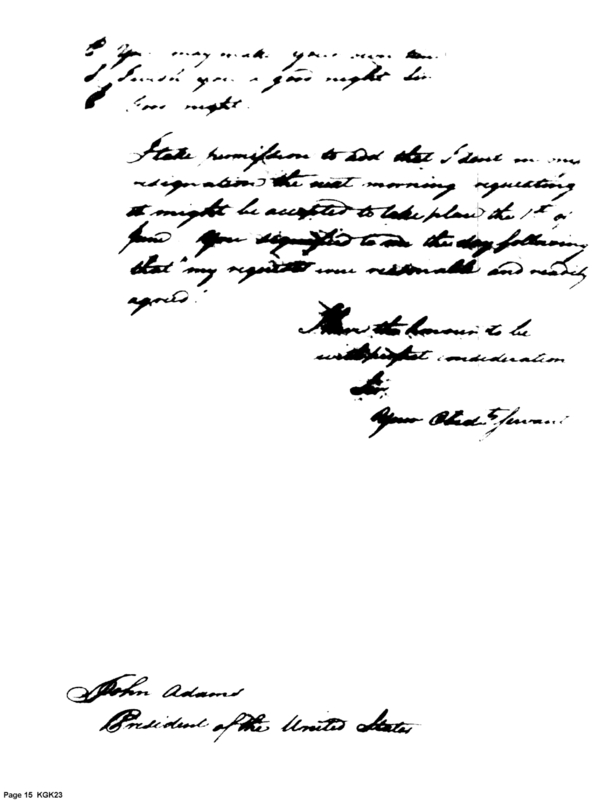 P You may make your own time
S I wish you a good night Sir
P Good night.
I take permission to add that I sent in my
resignation the next morning requesting
it might be accepted to take place the 1st of
June You signified to me the day following
that "my requests were reasonable and readily
agreed".
I have the honour to be
with perfect consideration
Sir,
Your Obedt. Servant
John Adams
President of the United States
Page 15 KGK23